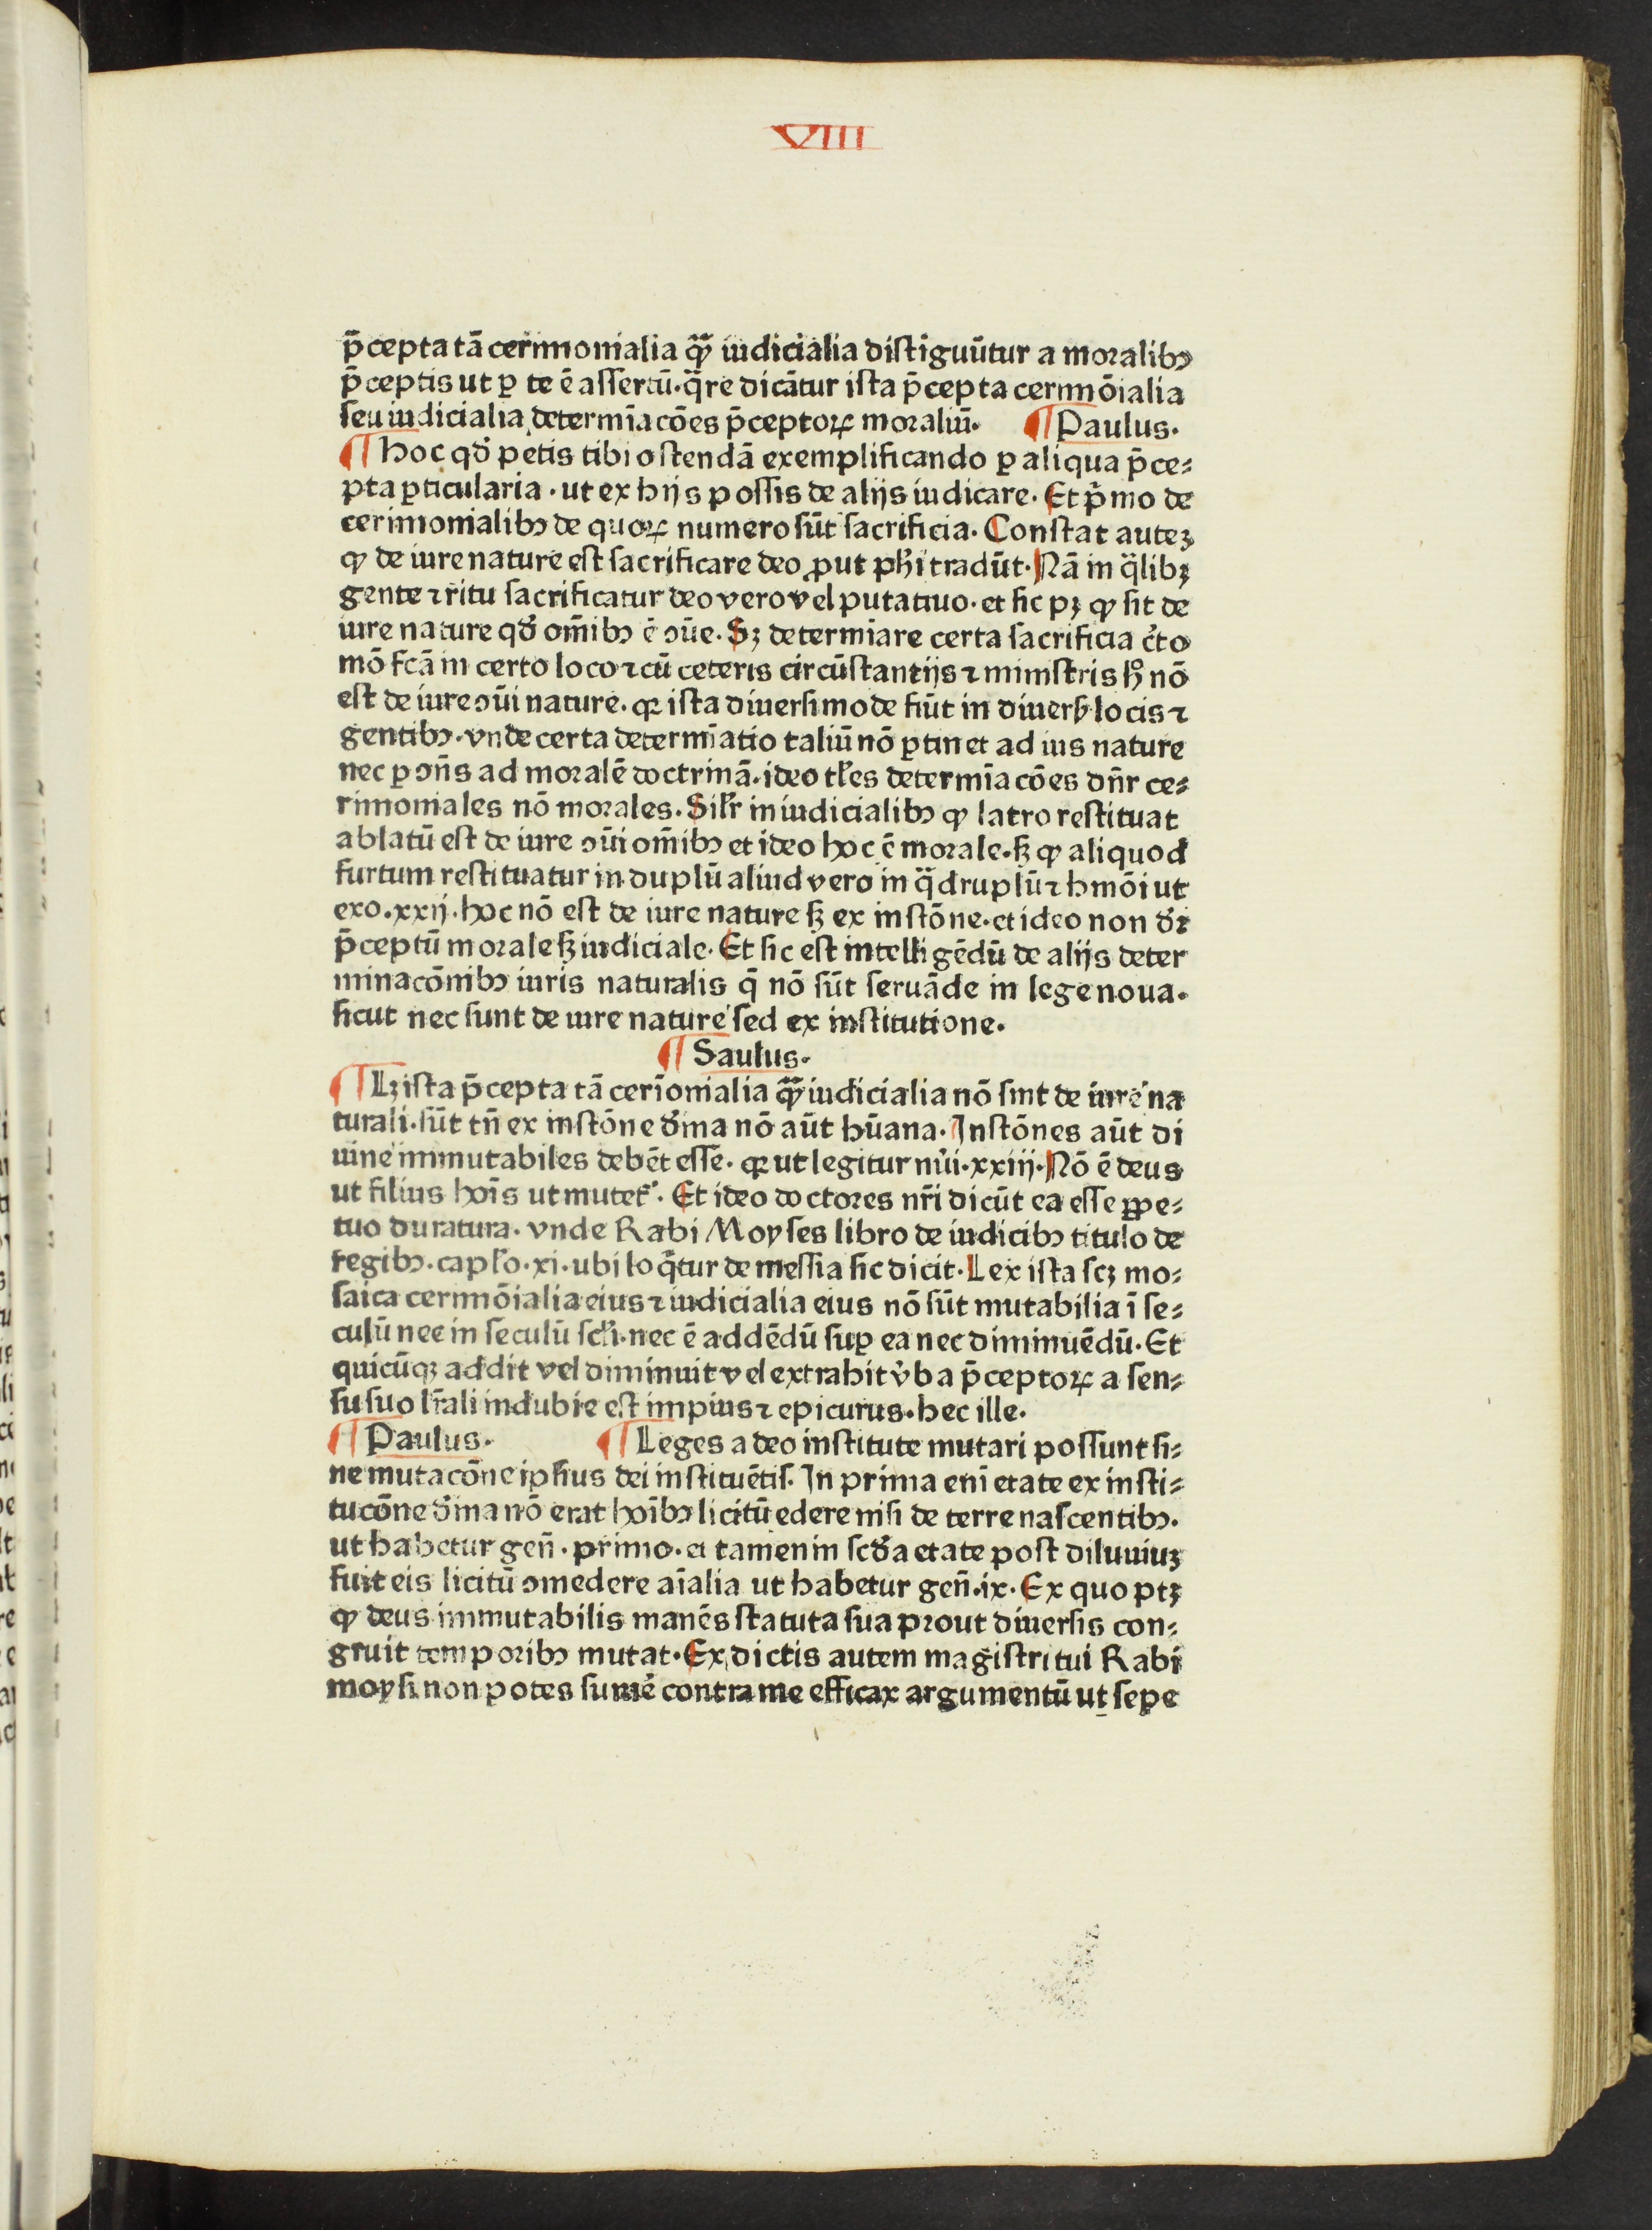 VIII
p̄cepta tā cerimonialia qͣ̄ iudicialia distiguūtur a moralibꝰ
p̄ceptis ut ꝑ te ē assertū. qͣre dicātur ista p̄cepta cerimōialia
seu iudicialia determīacōes p̄ceptoꝝ moraliū. ¶ Paulus.
¶ Hoc qđ petis tibi ostendā exemplificando ꝑ aliqua p̄ce⸗
pta ꝑticularia. ut ex hijs possis de alijs iudicare. Et p̄mo de
cerimonialibꝰ de quoꝝ numero sūt sacrificia. Constat auteꝫ
ꝙ de iure nature est sacrificare deo ꝓut ph̄i tradūt. Nā in qͣlibꝫ
gente ⁊ ritu sacrificatur deo vero vel putatiuo. et sic pꝫ ꝙ sit de
iure nature qđ om̄ibꝰ ē ꝯūe. Sꝫ determīare certa sacrificia c̓to
mō fcā in certo loco ⁊ cū ceteris circūstantijs ⁊ ministris hᵒ nō
est de iure ꝯūi nature. qꝛ ista diuersimode fiūt in diuersꝭ locis ⁊
gentibꝰ. vnde certa determīatio taliū nō ꝑtinet ad ius nature
nec ꝑ ꝯn̄s ad moralē doctrinā. ideo tl̄es determīacōes dn̄r ce⸗
rimoniales nō morales. Sil̄r in iudicialibꝰ ꝙ latro restituat
ablatū est de iure ꝯūi om̄ibꝰ et ideo hoc ē morale. sꝫ ꝙ aliquod
furtum restituatur in duplū aliud vero in qͣdruplū ⁊ hmōi ut
exo. xxij. hoc nō est de iure nature sꝫ ex instōne. et ideo non dr̄
p̄ceptū morale sꝫ iudiciale. Et sic est intelligēdū de alijs deter
minacōnibꝰ iuris naturalis q̄ nō sūt seruāde in lege noua.
sicut nec sunt de iure nature sed ex institutione.
¶ Saulus.
¶ Lꝫ ista p̄cepta tā cerīonialia qͣ̄ iudicialia nō sint de iure na
turali. sūt tn̄ ex instōne dīna nō aūt hūana. Instōnes aūt di
uine immutabiles debēt esse. qꝛ ut legitur nūi. xxiij. Nō ē deus
ut filius hoīs ut mutet᷑. Et ideo doctores nr̄i dicūt ea esse ꝑpe⸗
tuo duratura. vnde Rabi Moyses libro de iudicibꝰ titulo de
regibꝰ. capl̄o. xi. ubi loq̄tur de messia sic dicit. Lex ista scꝫ mo⸗
saica cerimōialia eius ⁊ iudicialia eius nō sūt mutabilia ī se⸗
culū nec in seculū scl̄i. nec ē addēdū suꝑ ea nec diminuēdū. Et
quicūqꝫ addit vel diminuit vel extrahit v̓ba p̄ceptoꝝ a sen⸗
su suo lr̄ali indubie est impius ⁊ epicurus. hec ille.
¶ Paulus. ¶ Leges a deo institute mutari possunt si⸗
ne mutacōne ipsius dei instituētis. In prima enī etate ex insti⸗
tucōne dīna nō erat hoībꝰ licitū edere nisi de terre nascentibꝰ.
ut habetur gen̄. primo. et tamen in scđa etate post diluuiuꝫ
fuit eis licitū ꝯmedere aīalia ut habetur gen̄. ix. Ex quo ptꝫ
ꝙ deus immutabilis manēs statuta sua prout diuersis con⸗
gruit temporibꝰ mutat. Ex dictis autem magistri tui Rabi
moysi non potes sumē contra me efficax argumentū ut sepe